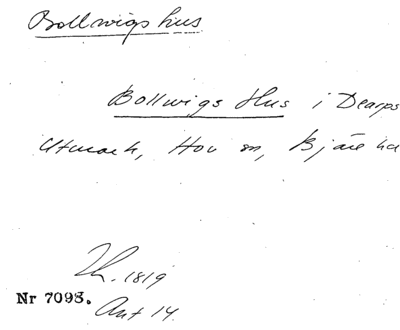 Bollwigs hus
Bollwigs Hus i Dearps
Utmark, Hov sn, Bjäre hd
Lh. 1819
Nr 7093.
Ant 14